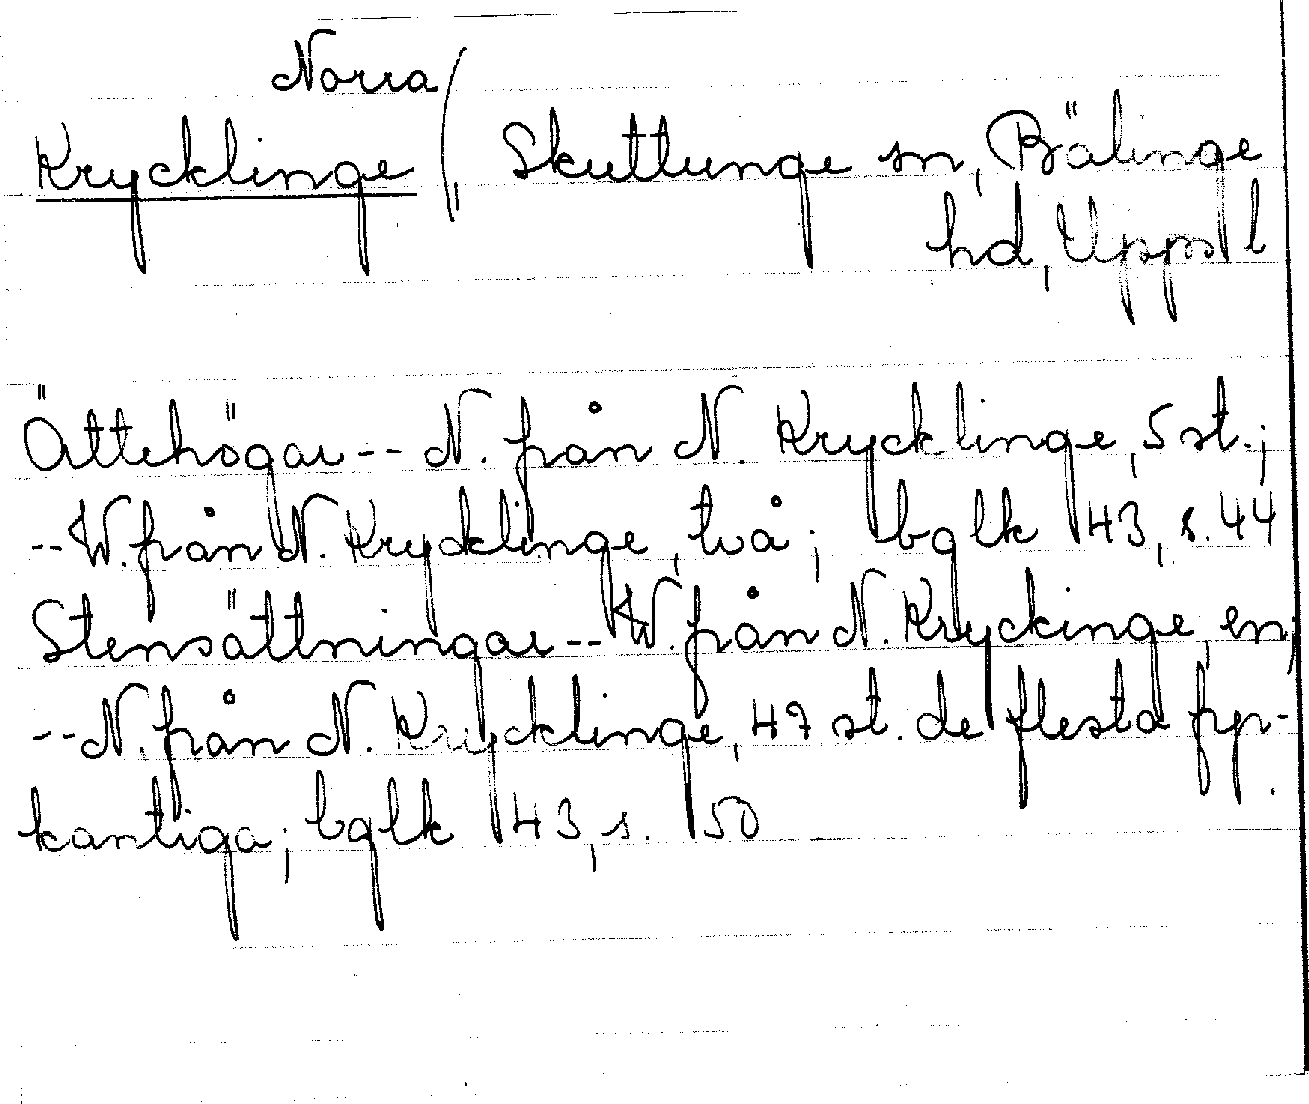 Norra
Krycklinge, Skuttunge sn, Bälinge
hd, Uppsl
Ättehögar -- N. från N. Krycklinge, 5 st.;
-- W. från N. Krycklinge, två; bglk 43, s. 44
Stensättningar -- W. från N. Kryckinge, en;
-- N. från N. Krycklinge, 47 st. de flesta fyr-
kantiga; bglk 43, s. 50